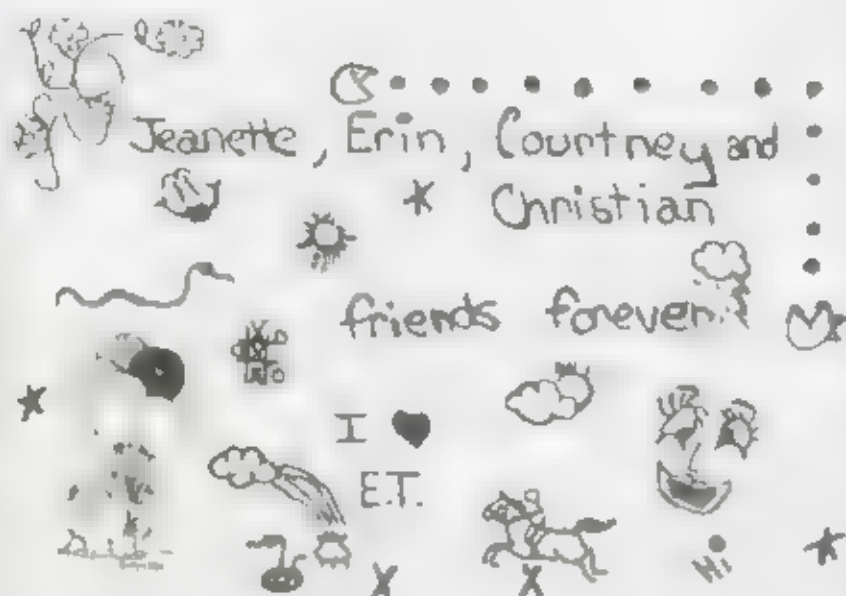 Jeanette, Erin, Courtney and
Christian
friends forever
I ♥
E.T.
Hi